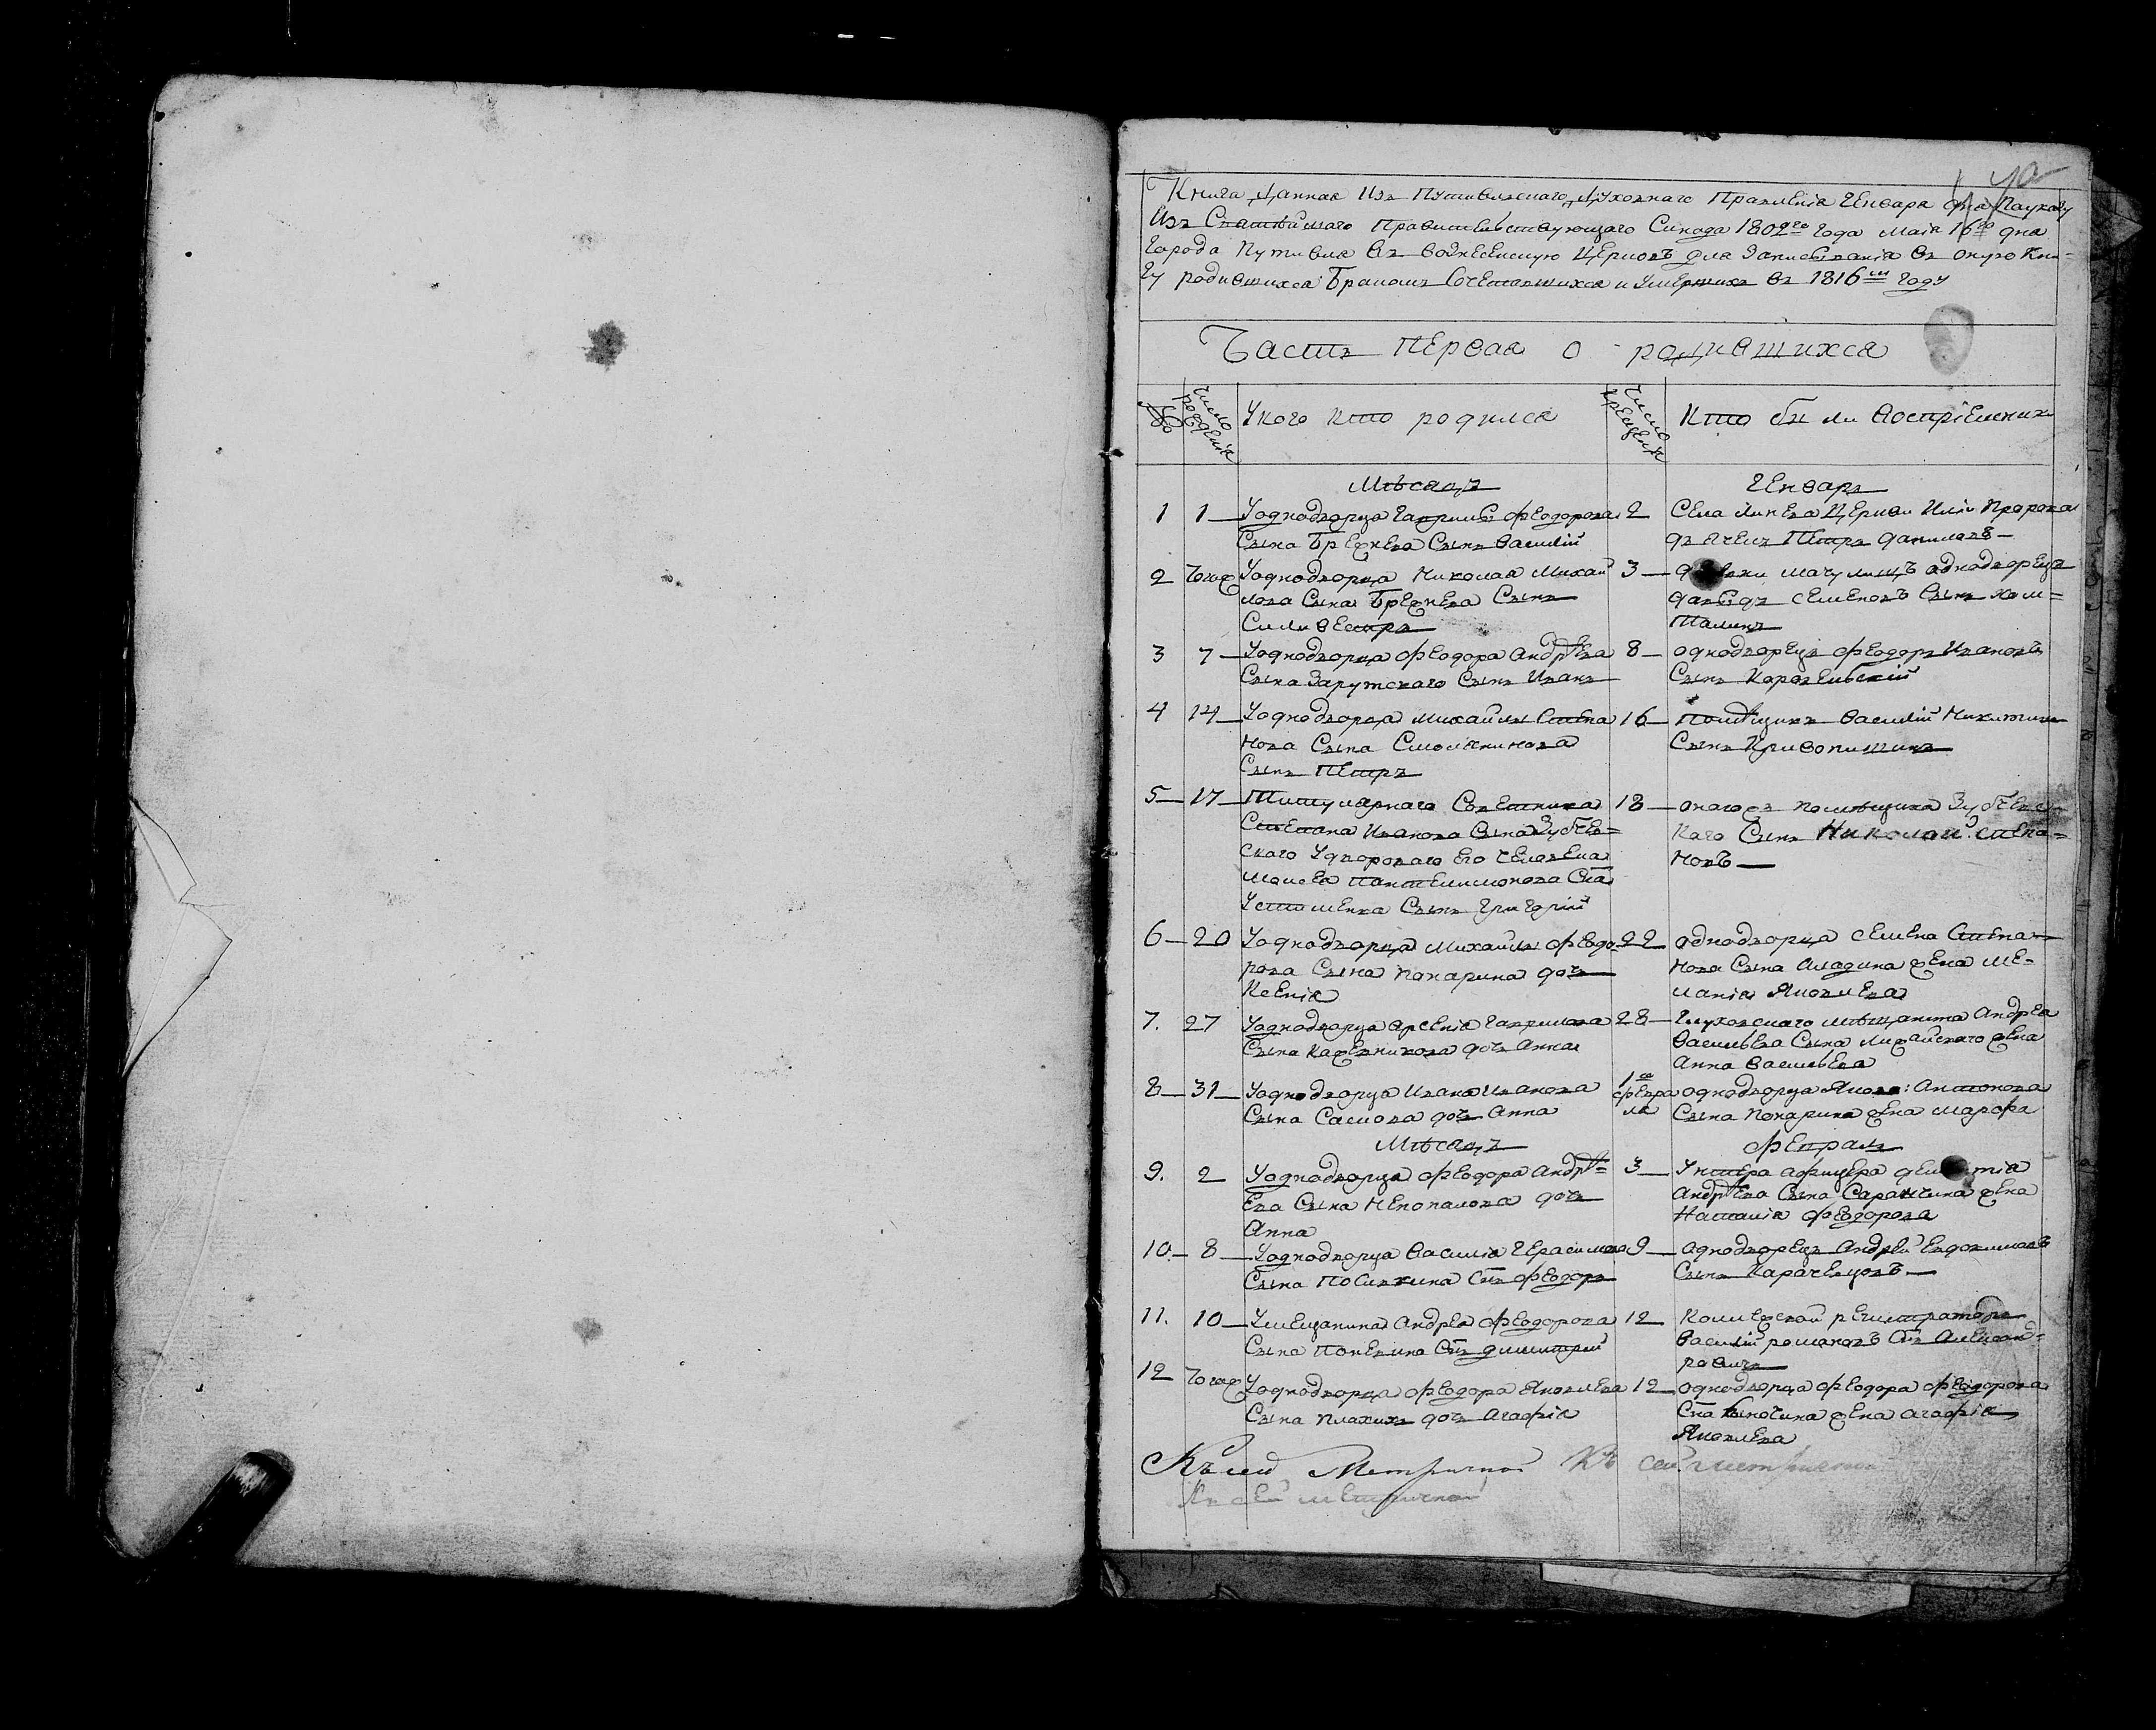 Книга Данная Изъ Путивльскаго Духовнаго Правленія Генваря дня Поуказу
Изъ Святѣйшаго Правительствующаго Синода 1802го года Маія 16го дня
Города Путивля въ Вознесенскую Церковь для Записыванія въ оную Кни=
гу родившихся Бракомъ Сочетавшихся и Умершихъ въ 1816м Году
Часть Первая о родившихся
№
Число рожденія
Укого кто родился
Число крещенія
Кто были Воспріемники
Мѣсяцъ
Генварь
1
1
Уоднодворца Гавріила Феодорова
Сына Брежнева Сынъ Василій
2
Села Линева Церкви Иліи Пророка
дьячекъ Петръ Даниловъ
2
Тогож
Уоднодворца Николая Михай
лова Сына Брежнева Сынъ
Силивестръ
3
Мачулищъ однодворецъ
Давыдъ Семеновъ Сынъ
3
7
Уоднодворца Феодора Андрѣева
Сына Заруцкаго Сынъ Иванъ
8
однодворецъ Феодоръ Ивановъ
Сынъ
4
14
Уоднодворца Михайлы Степа
нова Сына Смольянинова
Сынъ Петръ
16
Помѣщикъ Василій Никитинъ
Сынъ Кривопишинъ
5
17
Титулярнаго Советника
Степана Иванова Сына
скаго Удвороваго Его Человека
Моисея Пантелимонова Сна
Устименка Сынъ Григорій
18
онагожъ помѣщика
каго Сынъ Николай Степа=
новъ
6
20
Уоднодворца Михайлы Феодо
рова Сына Понарина дочь
Ксенія
22
однодворца Семена Степа
нова Сына Аладина жена Ме=
ланія Яковлева
7.
27
Уоднодворца Арсенія Гаврилова
Сына Кажевникова дочь Анна
28
Глуховскаго мѣщанина Андрея
Васильева Сына жена
Анна Васильева
8
31
Уоднодворца Ивана Иванова
Сына Самова дочь Анна
1го
февра
ля
однодворца Якова Антонова
Сына Понарина жена Марфа
Мѣсяцъ
Февраль
9.
2
Уоднодворца Феодора Андрѣ=
ева Сына Чепопалова дочь
Анна
3
Унтера офицера
Андрѣева Сына Саранчина жена
Наталія Феодорова
10
8
Уоднодворца Василія Герасимова
Сына Посилкина Снъ Феодоръ
9
однодворецъ Андрей Евдокимовъ
Сынъ Карачевцовъ
11.
10
Умещанина Андрея Феодорова
Сына Поневина Снъ Димитрій
12
Коллежской регистраторъ
Василій Романовъ Снъ Александ=
ровичъ
12
Тогож
Уоднодворца Феодора Яковлева
Сына Плахихъ дочь Агафія
12
однодворца Феодора Феодорова
Сна жена Агафія
Яковлева
Къ сей Метричной Къ сей метричной
Къ сей метричной